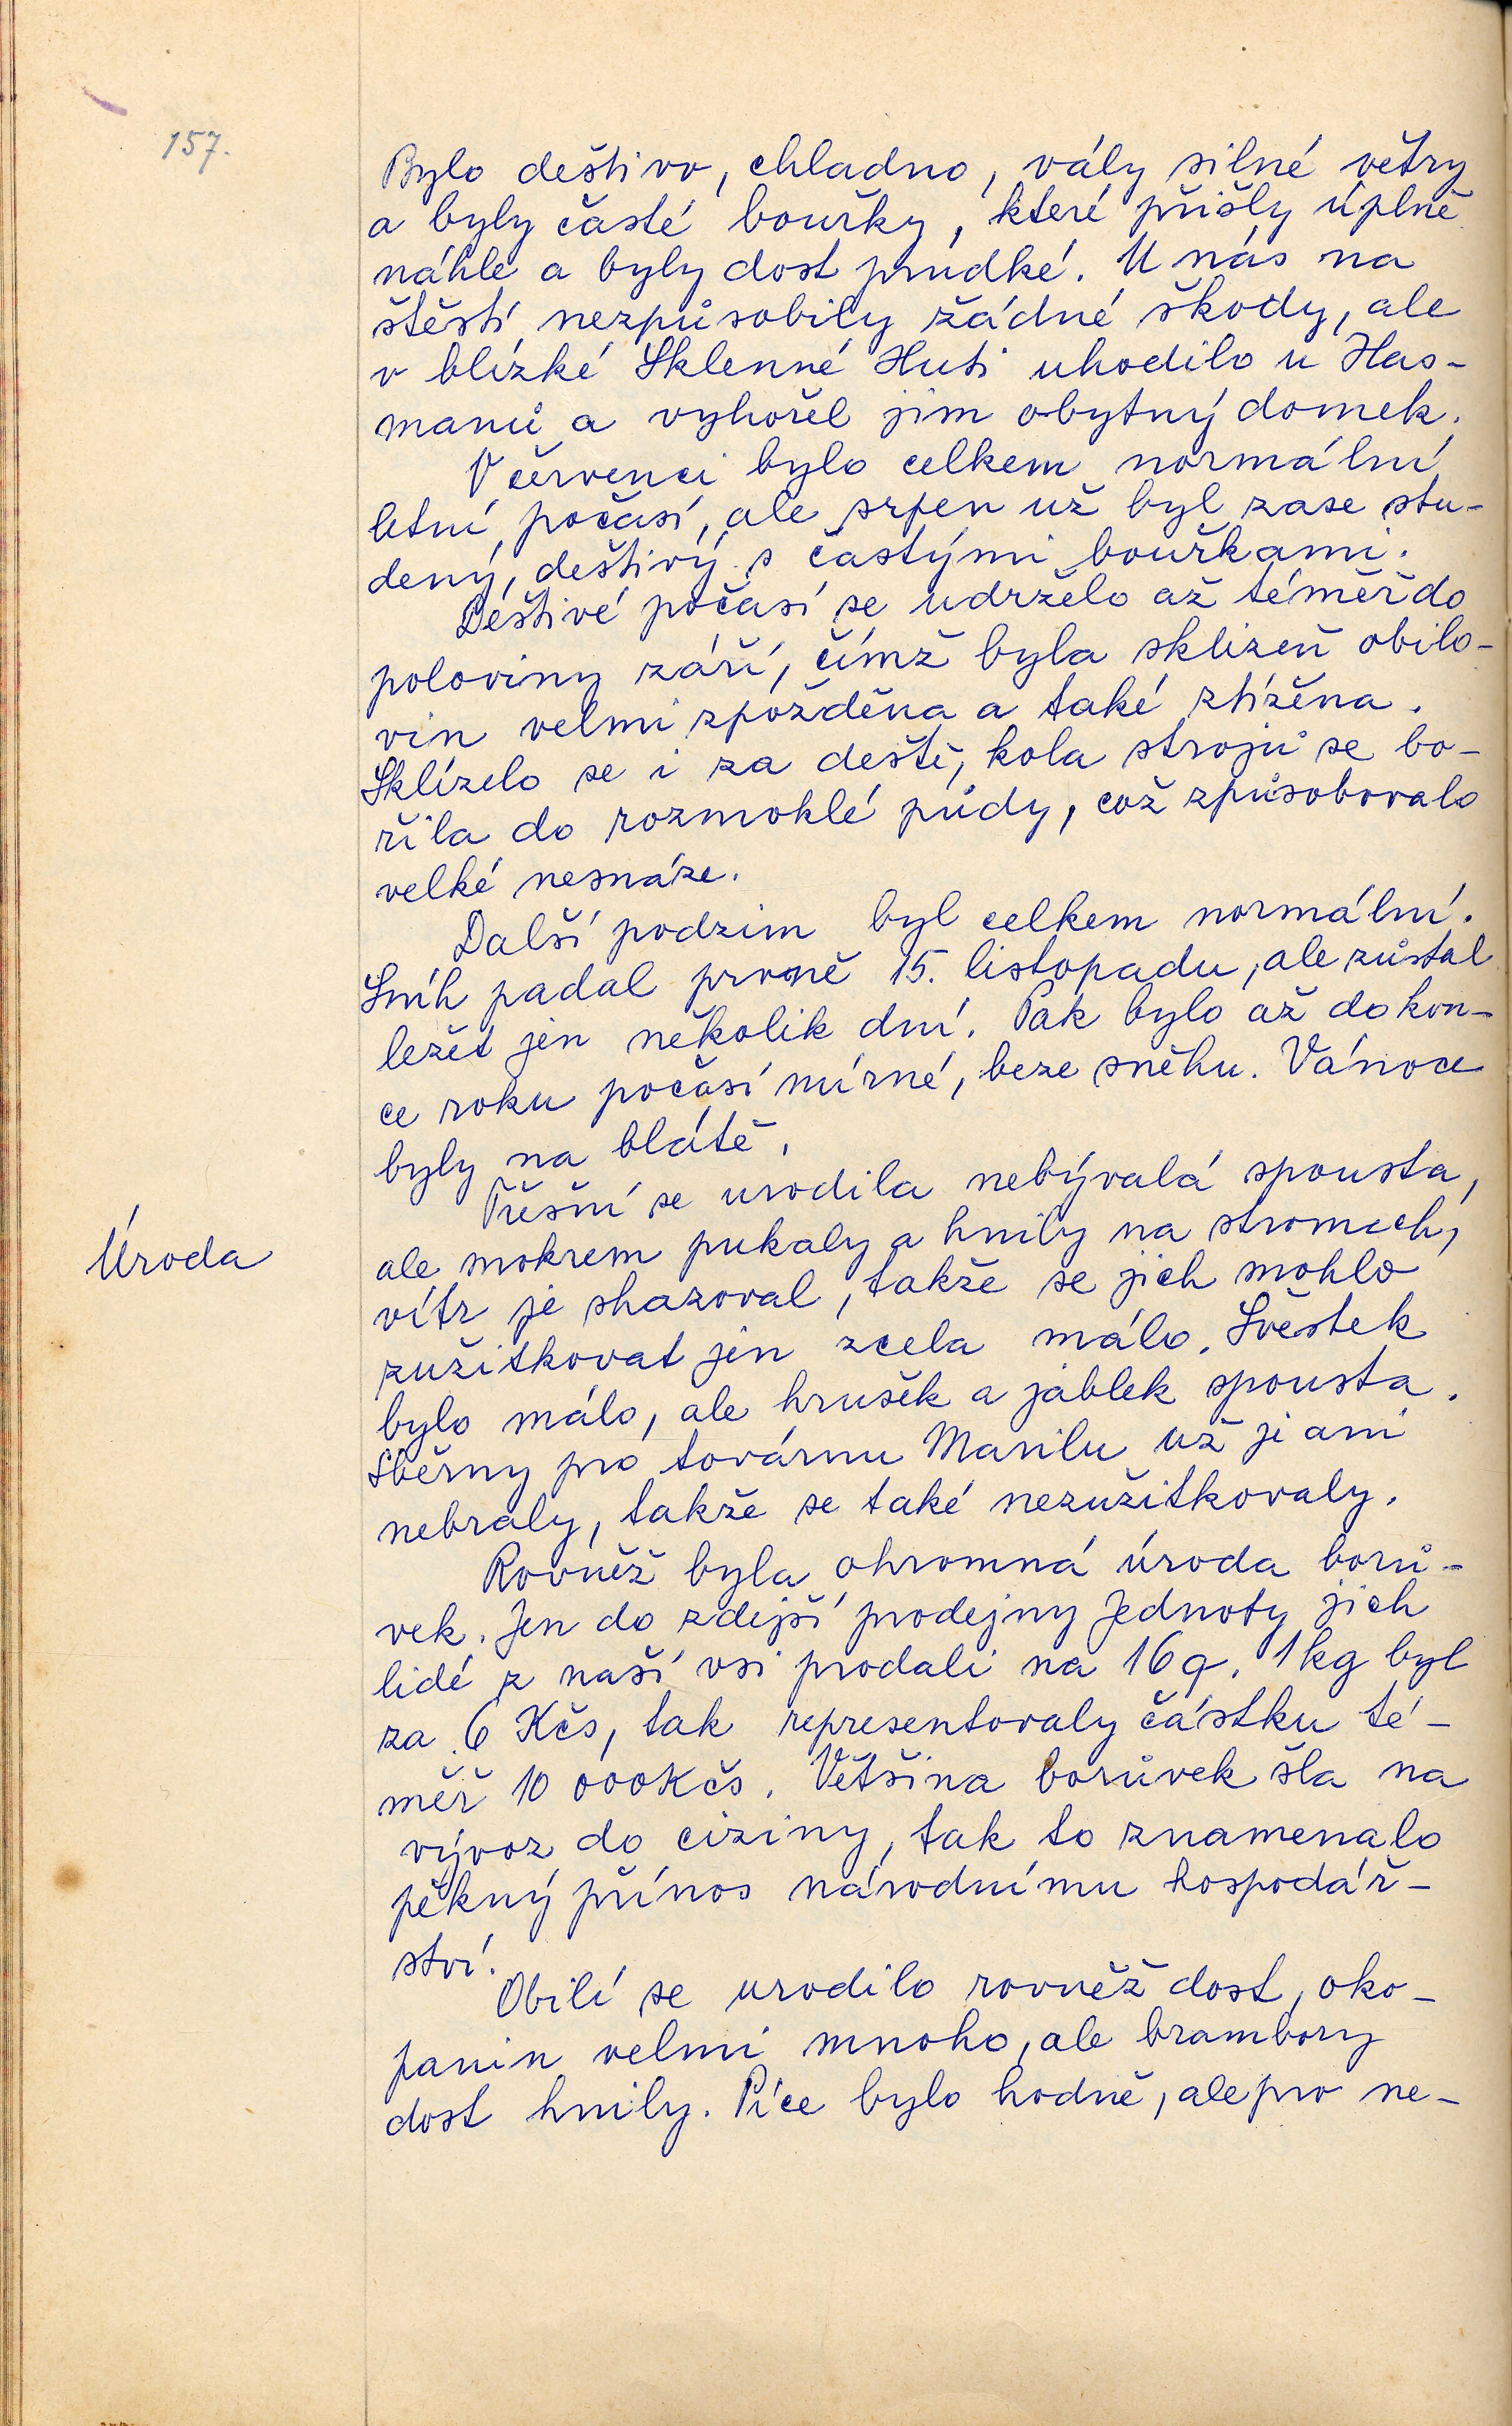 157.
Bylo deštivo, chladno, vály silné větry
a byly časté bouřky, které přišly úplně
náhle a byly dost prudké. U nás na
štěstí nezpůsobily žádné škody, ale
v blízké Sklenné Huti uhodilo u Has-
manů a vyhořel jim obytný domek.
V červenci bylo celkem normální
letní počasí, ale srpen už byl zase stu-
dený, deštivý s častými bouřkami.
Deštivé počasí se udrželo až téměř do
poloviny září, čímž byla sklizeň obilo-
vin velmi zpožděna a také ztížěna.
Sklízelo se i za deště, kola strojů se bo-
řila do rozmoklé půdy, což způsobovalo
velké nesnáze.
Další podzim byl celkem normální.
Sníh padal prvně 15. listopadu, ale zůstal
ležet jen několik dní. Pak bylo až do kon-
ce roku počasí mírné, beze sněhu. Vánoce
byly na blátě.
Úroda
Třešní se urodila nebývalá spousta,
ale mokrem pukaly a hnily na stromech,
vítr je shazoval, takže se jich mohlo
zužitkovat jen zcela málo. Švestek
bylo málo, ale hrušek a jablek spousta.
Sběrny pro továrnu Manilu už je ani
nebraly, takže se také nezužitkovaly.
Rovněž byla ohromná úroda borů-
vek. Jen do zdejší prodejny Jednoty jich
lidé z naší vsi prodali na 16 q. 1 kg byl
za 6 Kčs, tak representovaly částku té-
měř 10 000 Kčs. Většina borůvek šla na
vývoz do ciziny, tak to znamenalo
pěkný přínos národnímu hospodář-
ství.
Obilí se urodilo rovněž dost, oko-
panin velmi mnoho, ale brambory
dost hnily. Píce bylo hodně, ale pro ne-